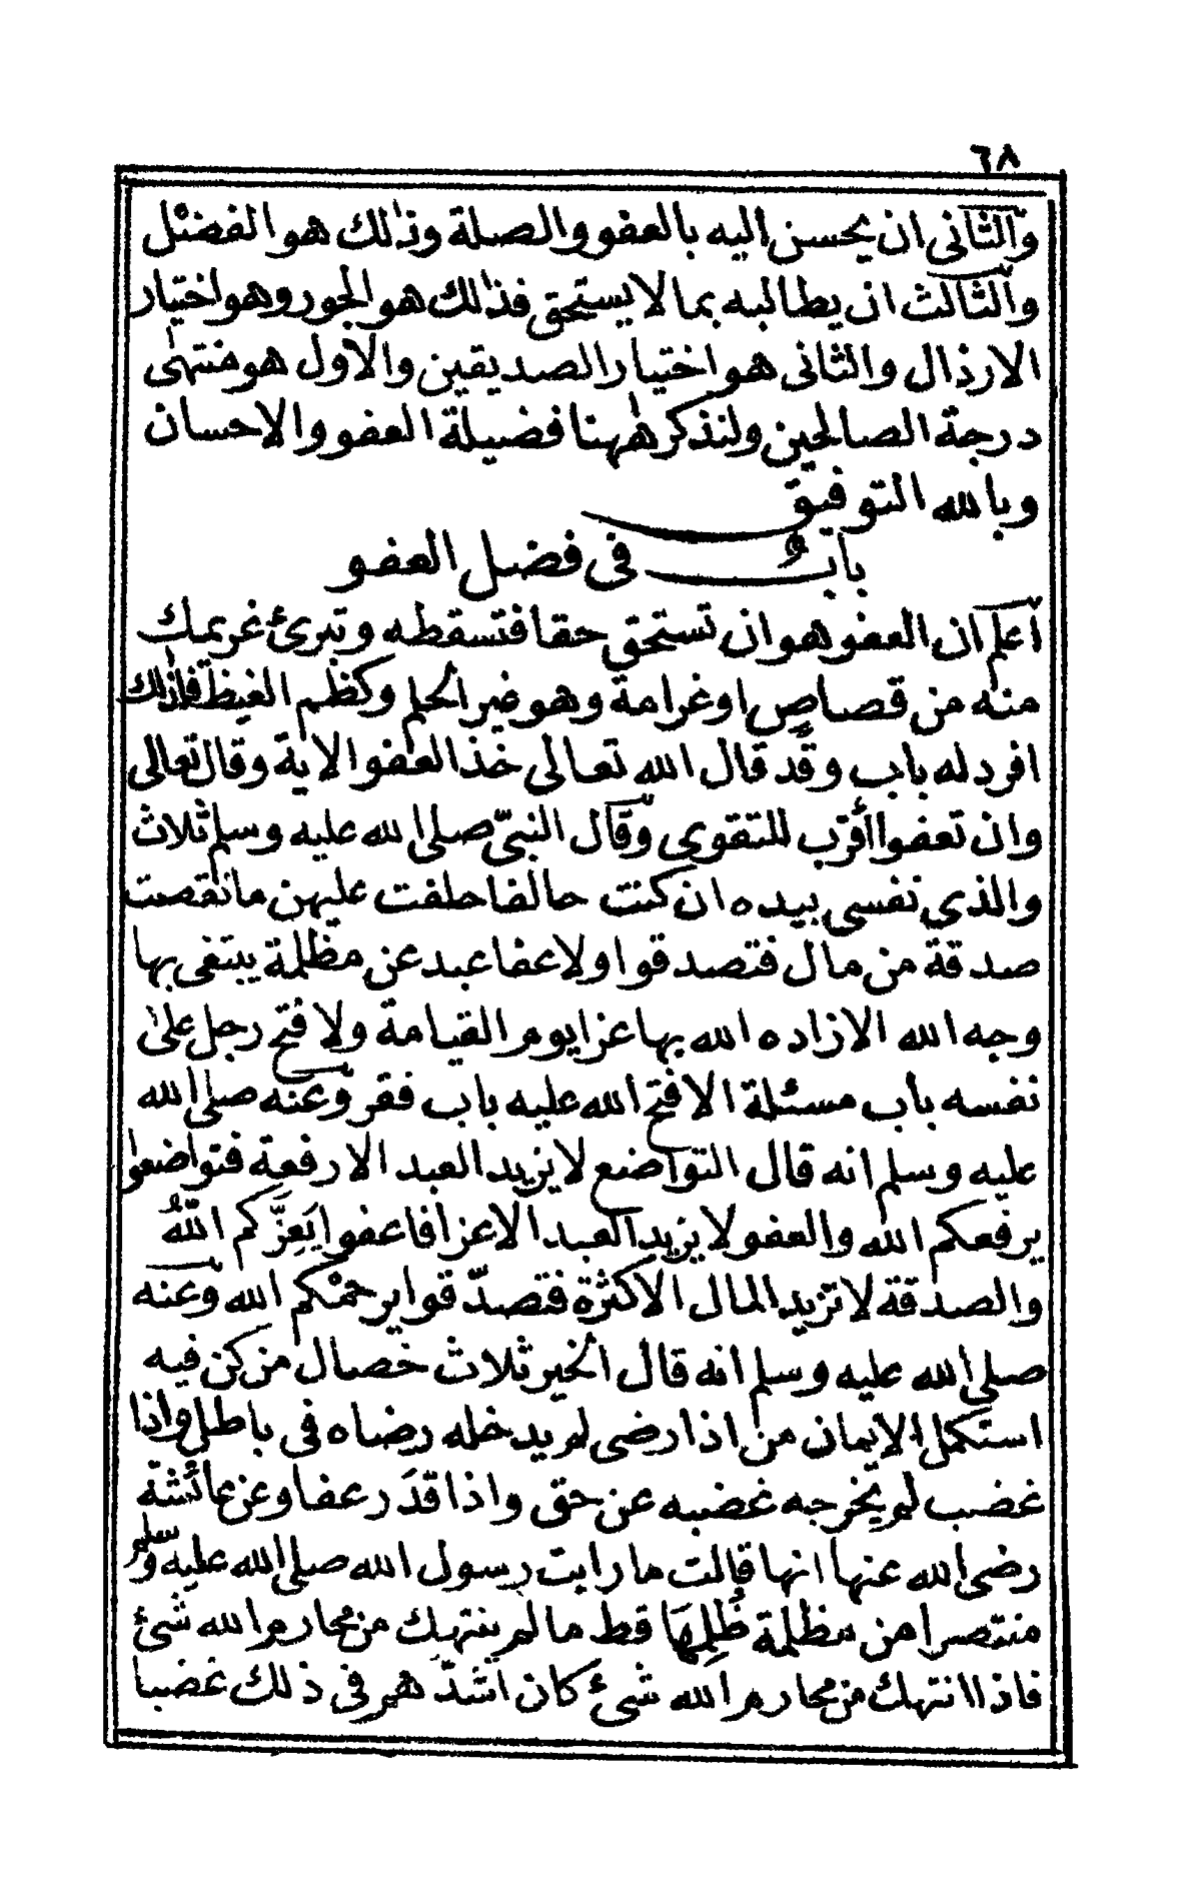 ٦٨
والثانى ان يحسن اليه بالعفو والصلة وذالك هو الفضل
والثالث ان يطالبه بما لا يستحق فذالك هو الجور وهو اختيار
الارذال والثانى هو اختيار الصديقين والاول هو منتهى
درجة الصالحين ولنذكر ههنا فضيلة العفو والاحسان
وبالله التوفيق
باب فى فضل العفو
اعلم ان العفو هو ان تستحق حقا فتسقطه وتبرئ غريمك
منه من قصاص او غرامة وهو غير الحلم وكظم الغيظ فلذلك
افرد له باب وقد قال الله تعالى خذ العفو الاية وقال تعالى
وان تعفوا أقرب للتقوى وقال النبىّ صلى الله عليه وسلم ثلاث
والذي نفسى بيده ان كنت حالفا حلفت عليهن ما نقصت
صدقة من مال فتصدقوا ولا عفا عبد عن مظلمة يبتغى بها
وجه الله الا زاده الله بها عزا يوم القيامة ولا فتح رجل على
نفسه باب مسئلة الا فتح الله عليه باب فقر وعنه صلى الله
عليه وسلم انه قال التواضع لا يزيد العبد الا رفعة فتواضعوا
يرفعكم الله والعفو لا يزيد العبد الا عزا فاعفوا يَعِزَّكم اللّٰهُ
والصدقة لا تزيد المال الا كثرة فتصدّقوا يرحمْكم الله وعنه
صلى الله عليه وسلم انه قال الخير ثلاث خصال من كن فيه
استكمل الايمان من اذا رضى لم يدخله رضاه فى باطل واذا
غضب لم يخرجه غضبه عن حق واذا قدَر عفا وعن عائشة
رضى الله عنها انها قالت ما رايت رسول الله صلى الله عليه وسلم
منتصرا من مظلمة ظُلِمَها قط ما لم ينتهك من محارم الله شئ
فاذا انتهك من محارم الله شئ كان اشدّهم فى ذلك غضبا